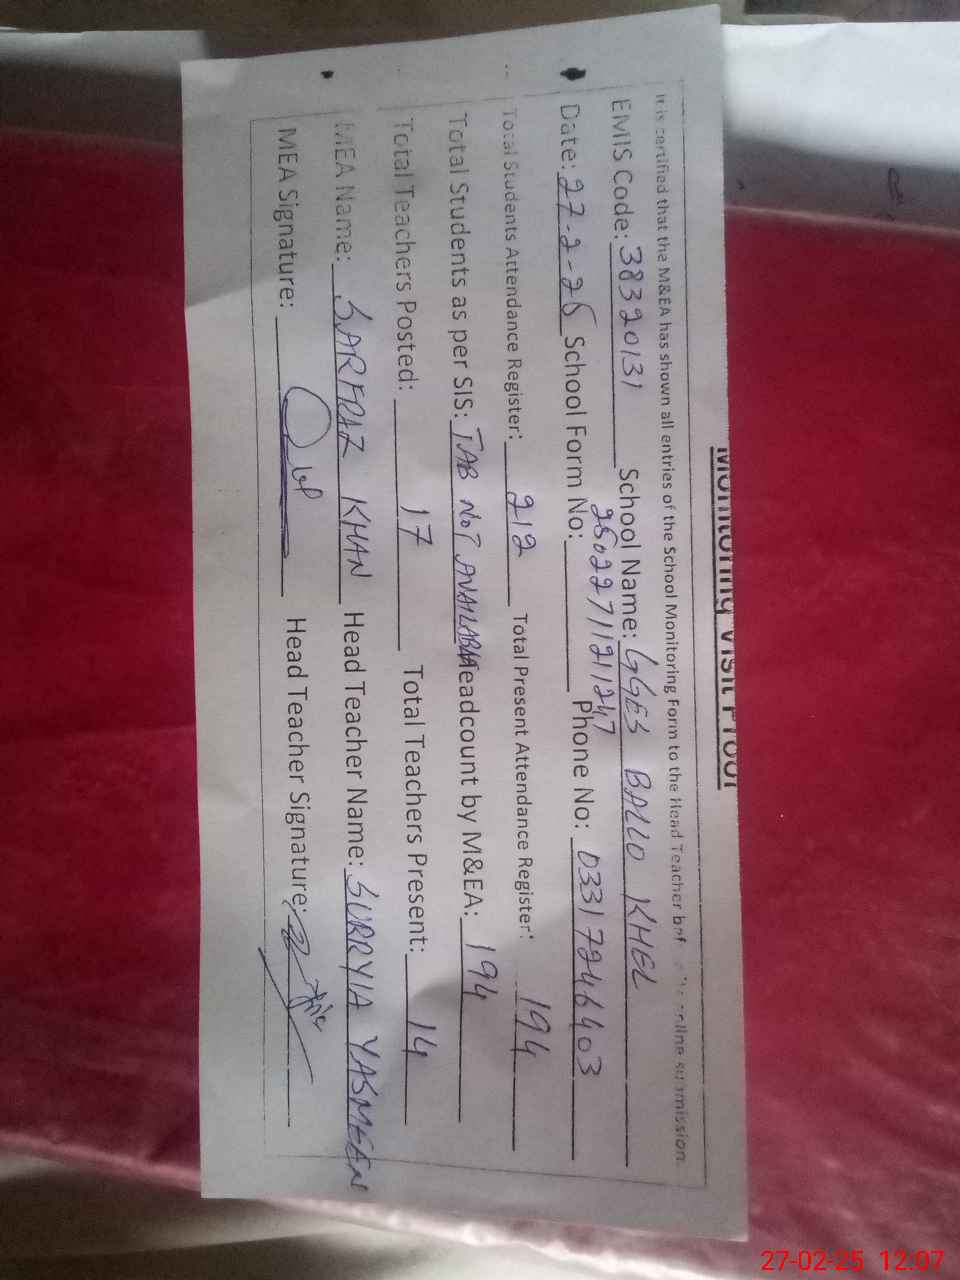 Monitoring Visit Proof
It is certified that the M&EA has shown all entries of the School Monitoring Form to the Head Teacher before the online submission.
EMIS Code: 38320131 School Name: GGES BALLO KHEL
Date: 27-2-25 School Form No: 250227112111247 Phone No: 03317246403
Total Students Attendance Register: 212 Total Present Attendance Register: 194
Total Students as per SIS: TAB NOT AVAILABLE Headcount by M&EA: 194
Total Teachers Posted: 17 Total Teachers Present: 14
MEA Name: SARFRAZ KHAN Head Teacher Name: SURRYIA YASMEEN
MEA Signature: Head Teacher Signature:
27-02-25 12:07